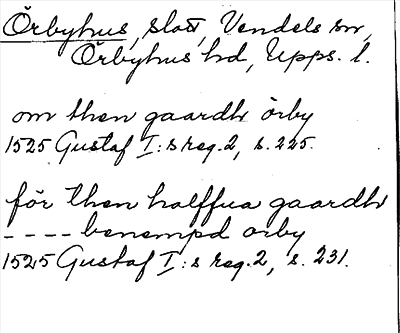 Örbyhus, slott, Vendels sn,
Örbyhus hd, Upps. l.
om then gaardh örby
1525 Gustaf I:s reg. 2, s. 225.
för then halffua gaardh
---- benempd örby
1525 Gustaf I:s reg. 2, s. 231.